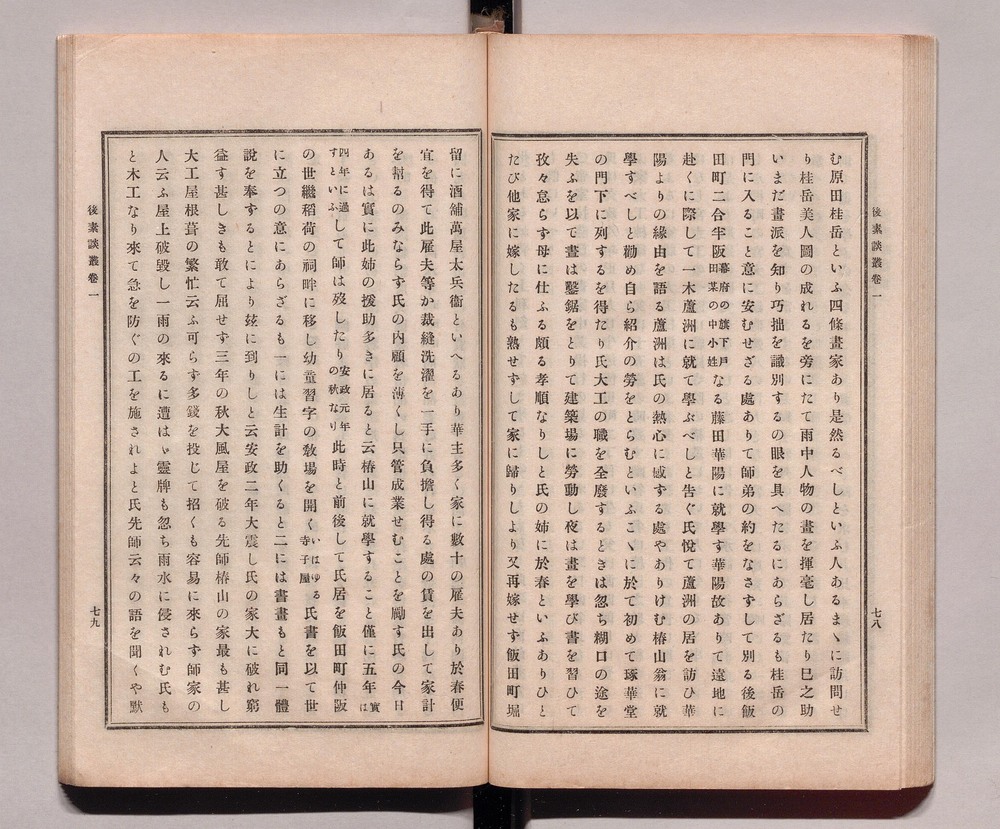 後素談叢卷一
む原田桂岳といふ四條畫家あり是然るべしといふ人あるまヽに訪問せ
り桂岳美人圖の成れるを旁にたて雨中人物の畫を揮毫し居たり巳之助
いまだ畫派を知り巧拙を識別するの眼を具へたるにあらざるも桂岳の
門に入ること意に安むせざる處ありて師弟の約をなさずして別る後飯
田町二合半阪幕府の旗下戸田某の中小姓なる藤田華陽に就學す華陽故ありて遠地に
赴くに際して一木蘆洲に就て學ぶべしと告ぐ氏悅て蘆洲の居を訪ひ華
陽よりの緣由を語る蘆洲は氏の熱心に感する處やありけむ椿山翁に就
學すべしと勸め自ら紹介の勞をとらむといふこヽに於て初めて琢華堂
の門下に列するを得たり氏大工の職を全廢するときは忽ち糊口の途を
失ふを以て晝は鑿鋸をとりて建築場に勞動し夜は畫を學び書を習ひて
孜々怠らず母に仕ふる頗る孝順なりしと氏の姉に於春といふありひと
たび他家に嫁したるも熟せずして家に歸りしより又再嫁せず飯田町堀
七八
留に酒舖萬屋太兵衞といへるあり華主多く家に數十の雇夫あり於春便
宜を得て此雇夫等か裁縫洗濯を一手に負擔し得る處の賃を出して家計
を幇るのみならす氏の內顧を薄くし只管成業せむことを勵す氏の今日
あるは實に此姉の援助多きに居ると云椿山に就學すること僅に五年實は
四年に過すといふして師は歿したり安政元年の秋なり此時と前後して氏居を飯田町仲阪
の世繼稻荷の祠畔に移し幼童習字の敎場を開くいはゆる寺子屋氏書を以て世
に立つの意にあらざるも一には生計を助くると二には書畫もと同一體
說を奉するとにより玆に到りしと云安政二年大震し氏の家大に破れ窮
益す甚しきも敢て屈せす三年の秋大風屋を破る先師椿山の家最も甚し
大工屋根葺の繁忙云ふ可らす多錢を投じて招くも容易に來らす師家の
人云ふ屋上破毀し一雨の來るに遭はヾ靈牌も忽ち雨水に侵されむ氏も
と木工なり來て急を防ぐの工を施されよと氏先師云々の語を聞くや默
後素談叢卷一
七九